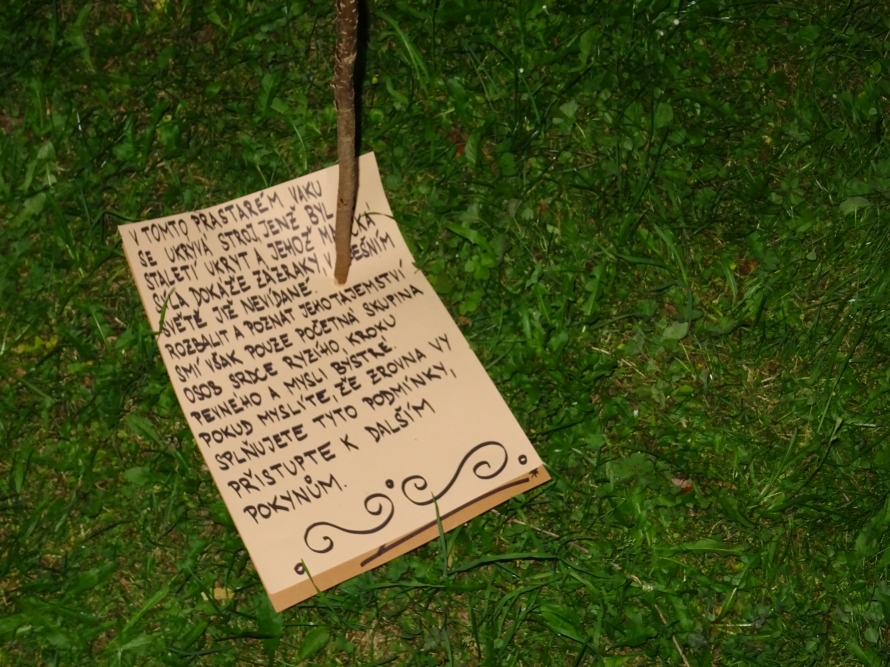 V TOMTO PRASTARÉM VAKU
SE UKRÝVÁ STROJ, JENŽ BYL
STALETÍ UKRYT A JEHOŽ
SÍLA DOKÁŽE ZÁZRAKY, V
SVĚTĚ JIŽ NEVÍDANÉ
ROZBALIT A POZNAT JEHO TAJEMSTVÍ
SMÍ VŠAK POUZE POČETNÁ SKUPINA
OSOB SRDCE RYZÍHO, KROKU
PEVNÉHO A MYSLI BYSTRÉ.
POKUD MYSLÍTE, ŽE ZROVNA VY
SPLŇUJETE TYTO PODMÍNKY,
PŘISTUPTE K DALŠÍM
POKYNŮM.